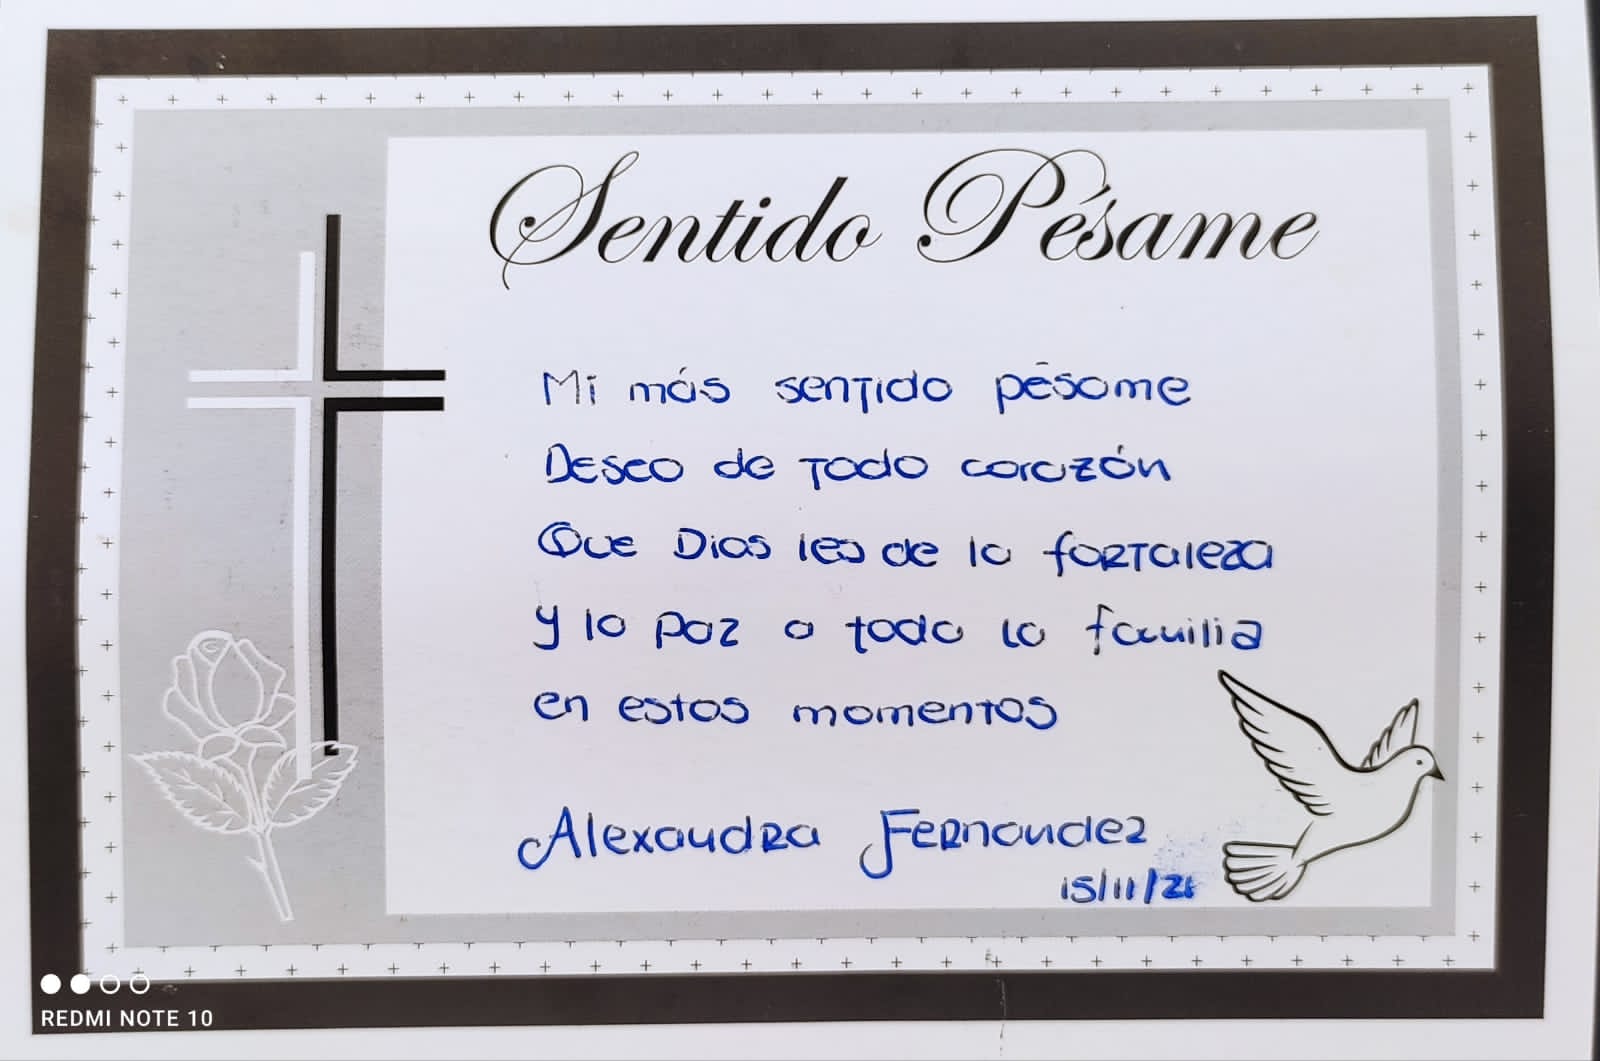 Sentido Pésame
Mi más sentido pésame
Deseo de todo corazón
Que Dios les de la fortaleza
y la paz a toda la familia
en estos momentos
Alexandra Fernandez
15/11/21
REDMI NOTE 10